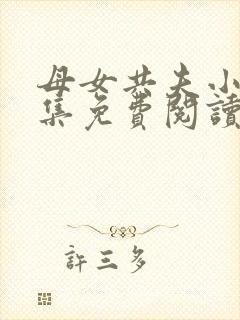 母女共夫小
集免費閱讀
許三多